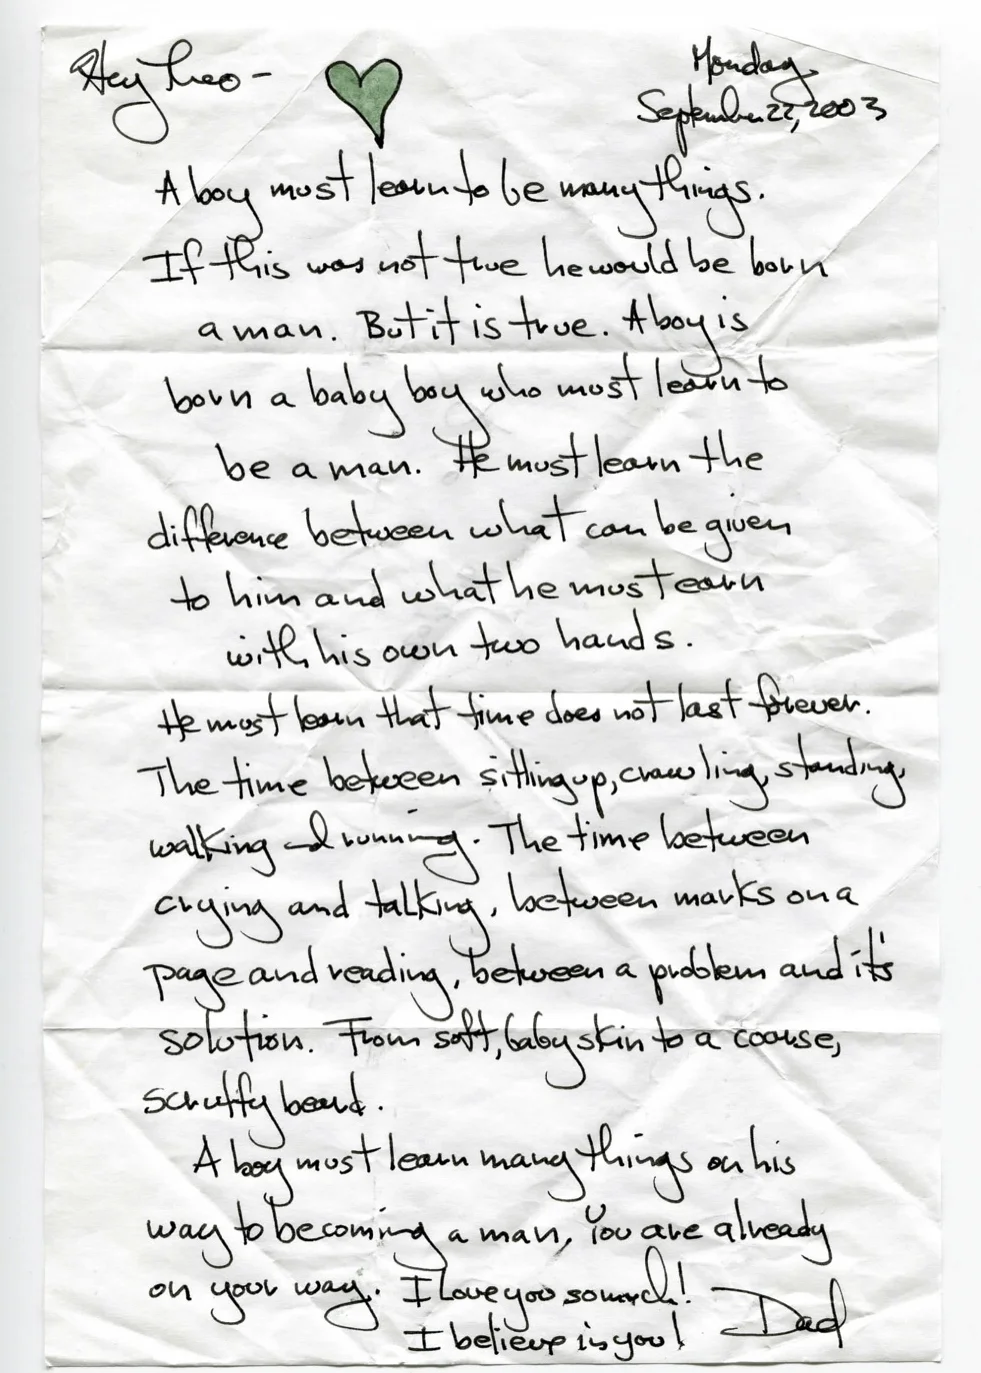 Hey Theo -
Monday
September 22, 2003
A boy must learn to be many things.
If this was not true he would be born
a man. But it is true. A boy is
born a baby boy who must learn to
be a man. He must learn the
difference between what can be given
to him and what he must earn
with his own two hands.
He must learn that time does not last forever.
The time between sitting up, crawling, standing,
walking and running. The time between
crying and talking, between marks on a
page and reading, between a problem and it's
solution. From soft, baby skin to a coarse,
scruffy beard.
A boy must learn many things on his
way to becoming a man. You are already
on your way. I love you so much!
I believe in you!
Dad